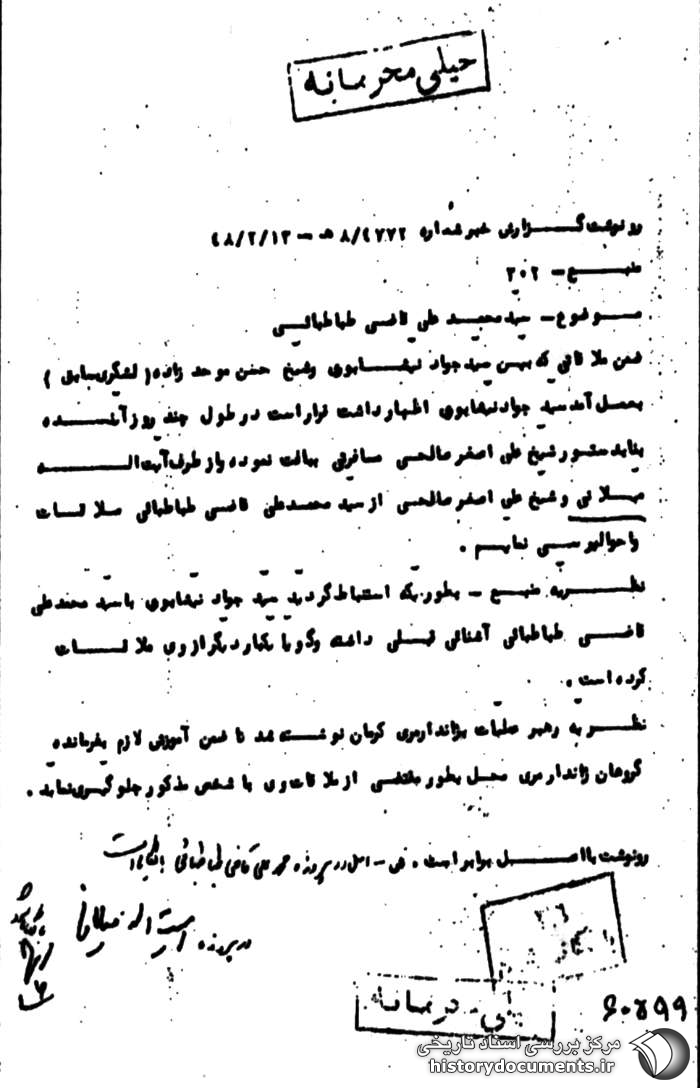 خیلی محرمانه
رونوشت گزارش خبر شماره ۸/۴۷۷۲ هـ – ۴۸/۲/۱۳
منبع – ۲۰۲
موضوع – سید محمد علی قاضی طباطبائی
ضمن ملاقاتی که بین سید جواد نیشابوری و شیخ حسن موحد زاده (لشگری سابق )
بعمل آمد سید جواد نیشابوری اظهار داشت قرار است در طول چند روز آینده
بنا بدستور شیخ علی اصغر صالحی مسافرتی ببافت نموده و از طرف آیت اله
میلانی و شیخ علی اصغر صالحی از سید محمدعلی قاضی طباطبائی ملاقات
و احوالپرسی نمایم .
نظریه منبع – بطوریکه استنباط گردید سید جواد نیشابوری با سید محمدعلی
قاضی طباطبائی آشنائی قبلی داشته و گویا یکبار دیگر از وی ملاقات
کرده است .
نظریه رهبر عملیات بژاندارمری کرمان نوشته شد تا ضمن آموزش لازم بفرمانده
گروهان ژاندارمری محل بطور مقتضی از ملاقات وی با شخص مذکور جلوگیری نماید .
رونوشت با اصل برابر است . فی – اصل در پرونده محمد علی قاضی طباطبائی است
در پرونده آیت اله میلانی
بایگانی
خیلی محرمانه
۶۰۵۹۹
مرکز بررسی اسناد تاریخی
historydocuments.ir